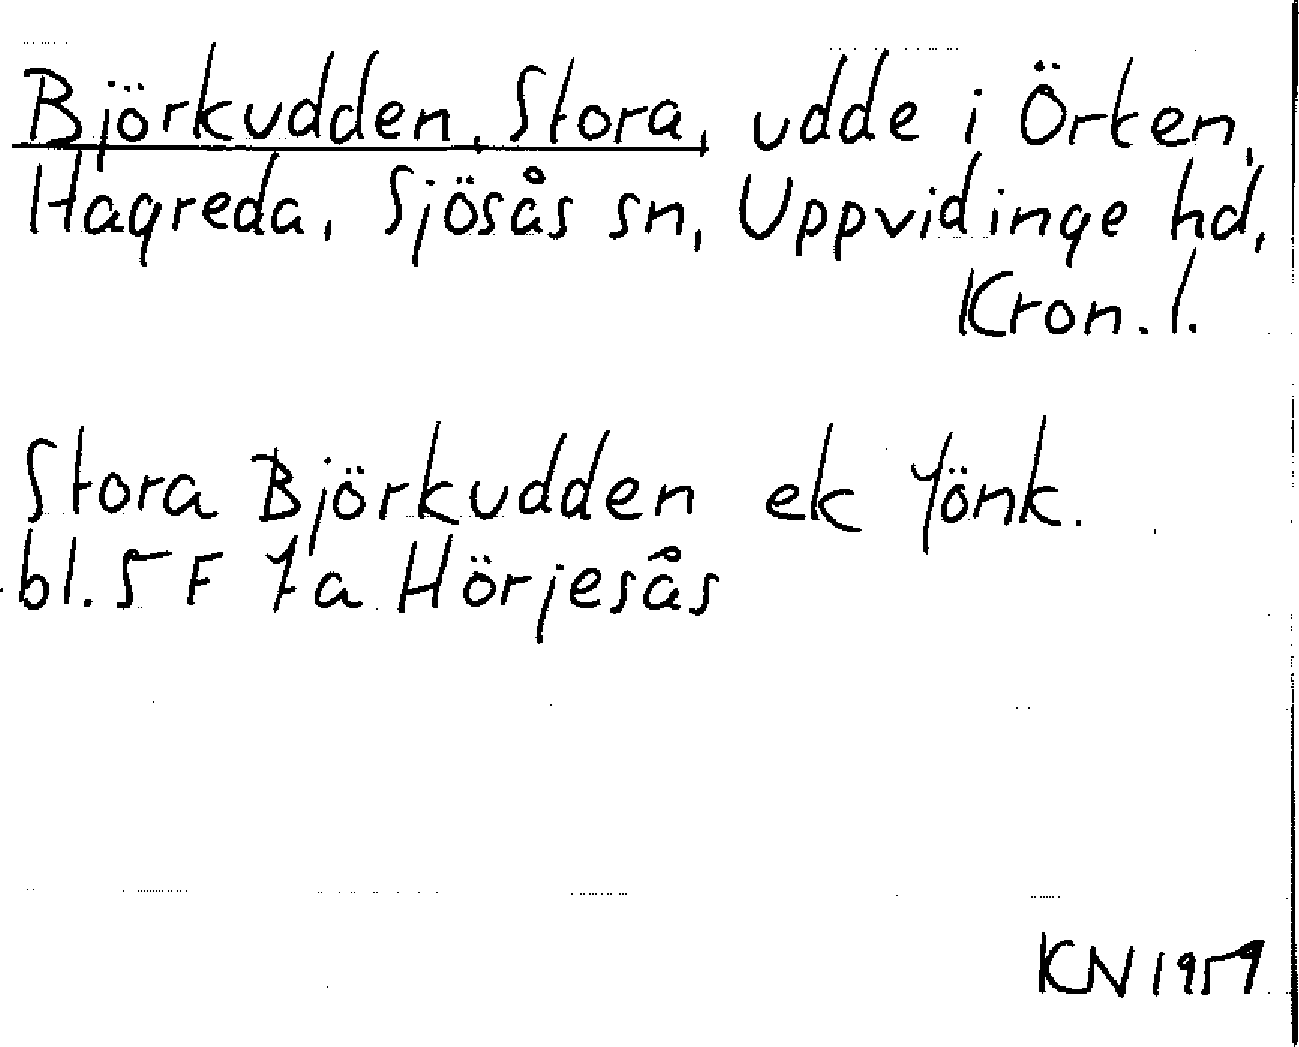 Björkudden, Stora, udde i Örken,
Hagreda, Sjösås sn, Uppvidinge hd,
Kron. l.
Stora Björkudden ek Jönk.
bl. 5 F 7a Hörjesås
KN 1959